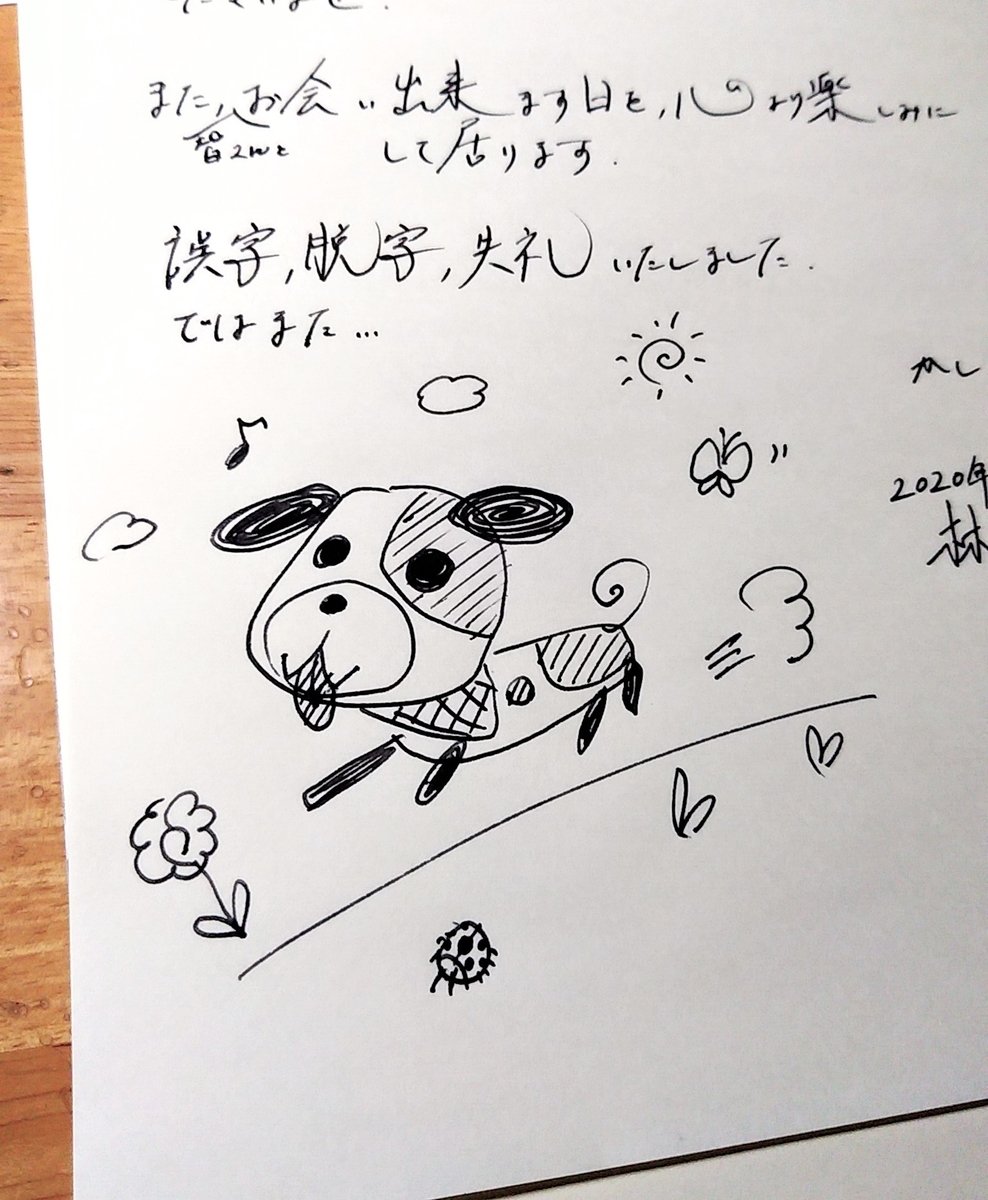 また、お会い出来ます日を、心より楽しみに
皆さんと
して居ります.
誤字,脱字,失礼いたしました.
ではまた…
かし
2020年
林